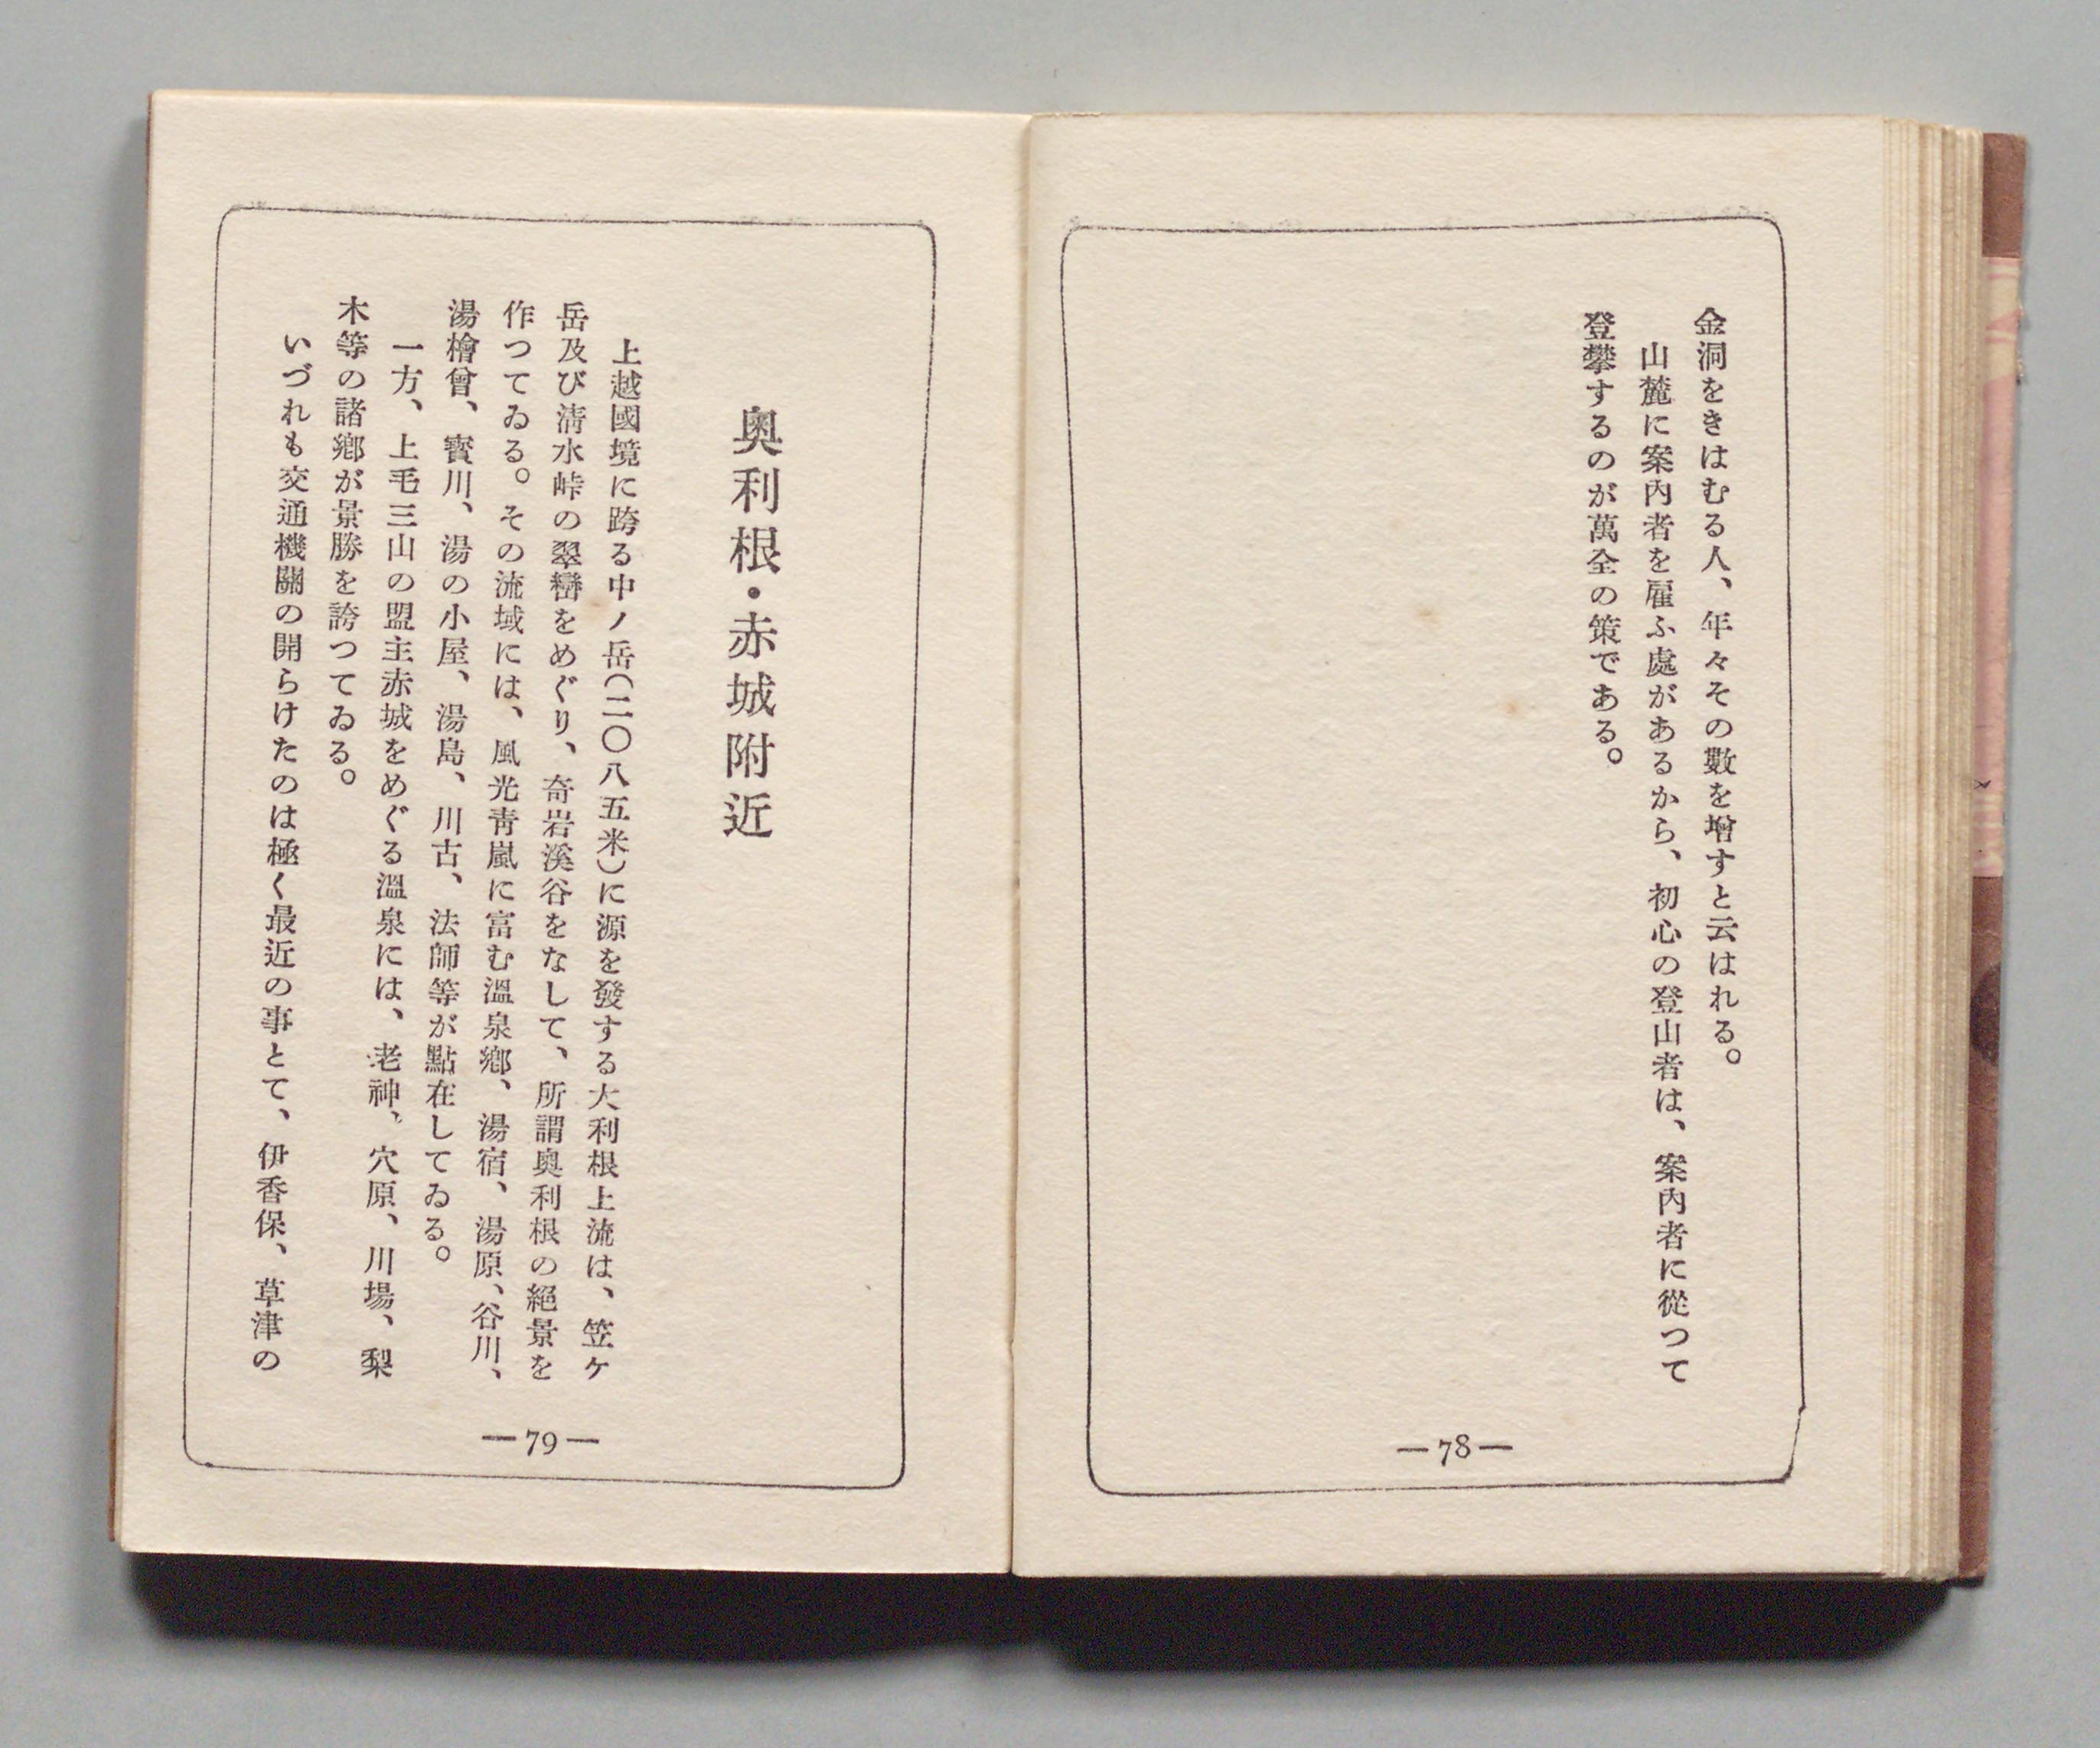 金洞をきはむる人、年々その數を增すと云はれる。
山麓に案內者を雇ふ處があるから、初心の登山者は、案內者に從つて
登攀するのが萬全の策である。
—78—
奧利根・赤城附近
上越國境に跨る中ノ岳(二〇八五米)に源を發する大利根上流は、笠ケ
岳及び淸水峠の翠巒をめぐり、奇岩溪谷をなして、所謂奧利根の絕景を
作つてゐる。その流域には、風光靑嵐に富む溫泉鄕、湯宿、湯原、谷川、
湯檜曾、寳川、湯の小屋、湯島、川古、法師等が點在してゐる。
一方、上毛三山の盟主赤城をめぐる溫泉には、老神、穴原、川場、梨
木等の諸鄕が景勝を誇つてゐる。
いづれも交通機關の開らけたのは極く最近の事とて、伊香保、草津の
—79—